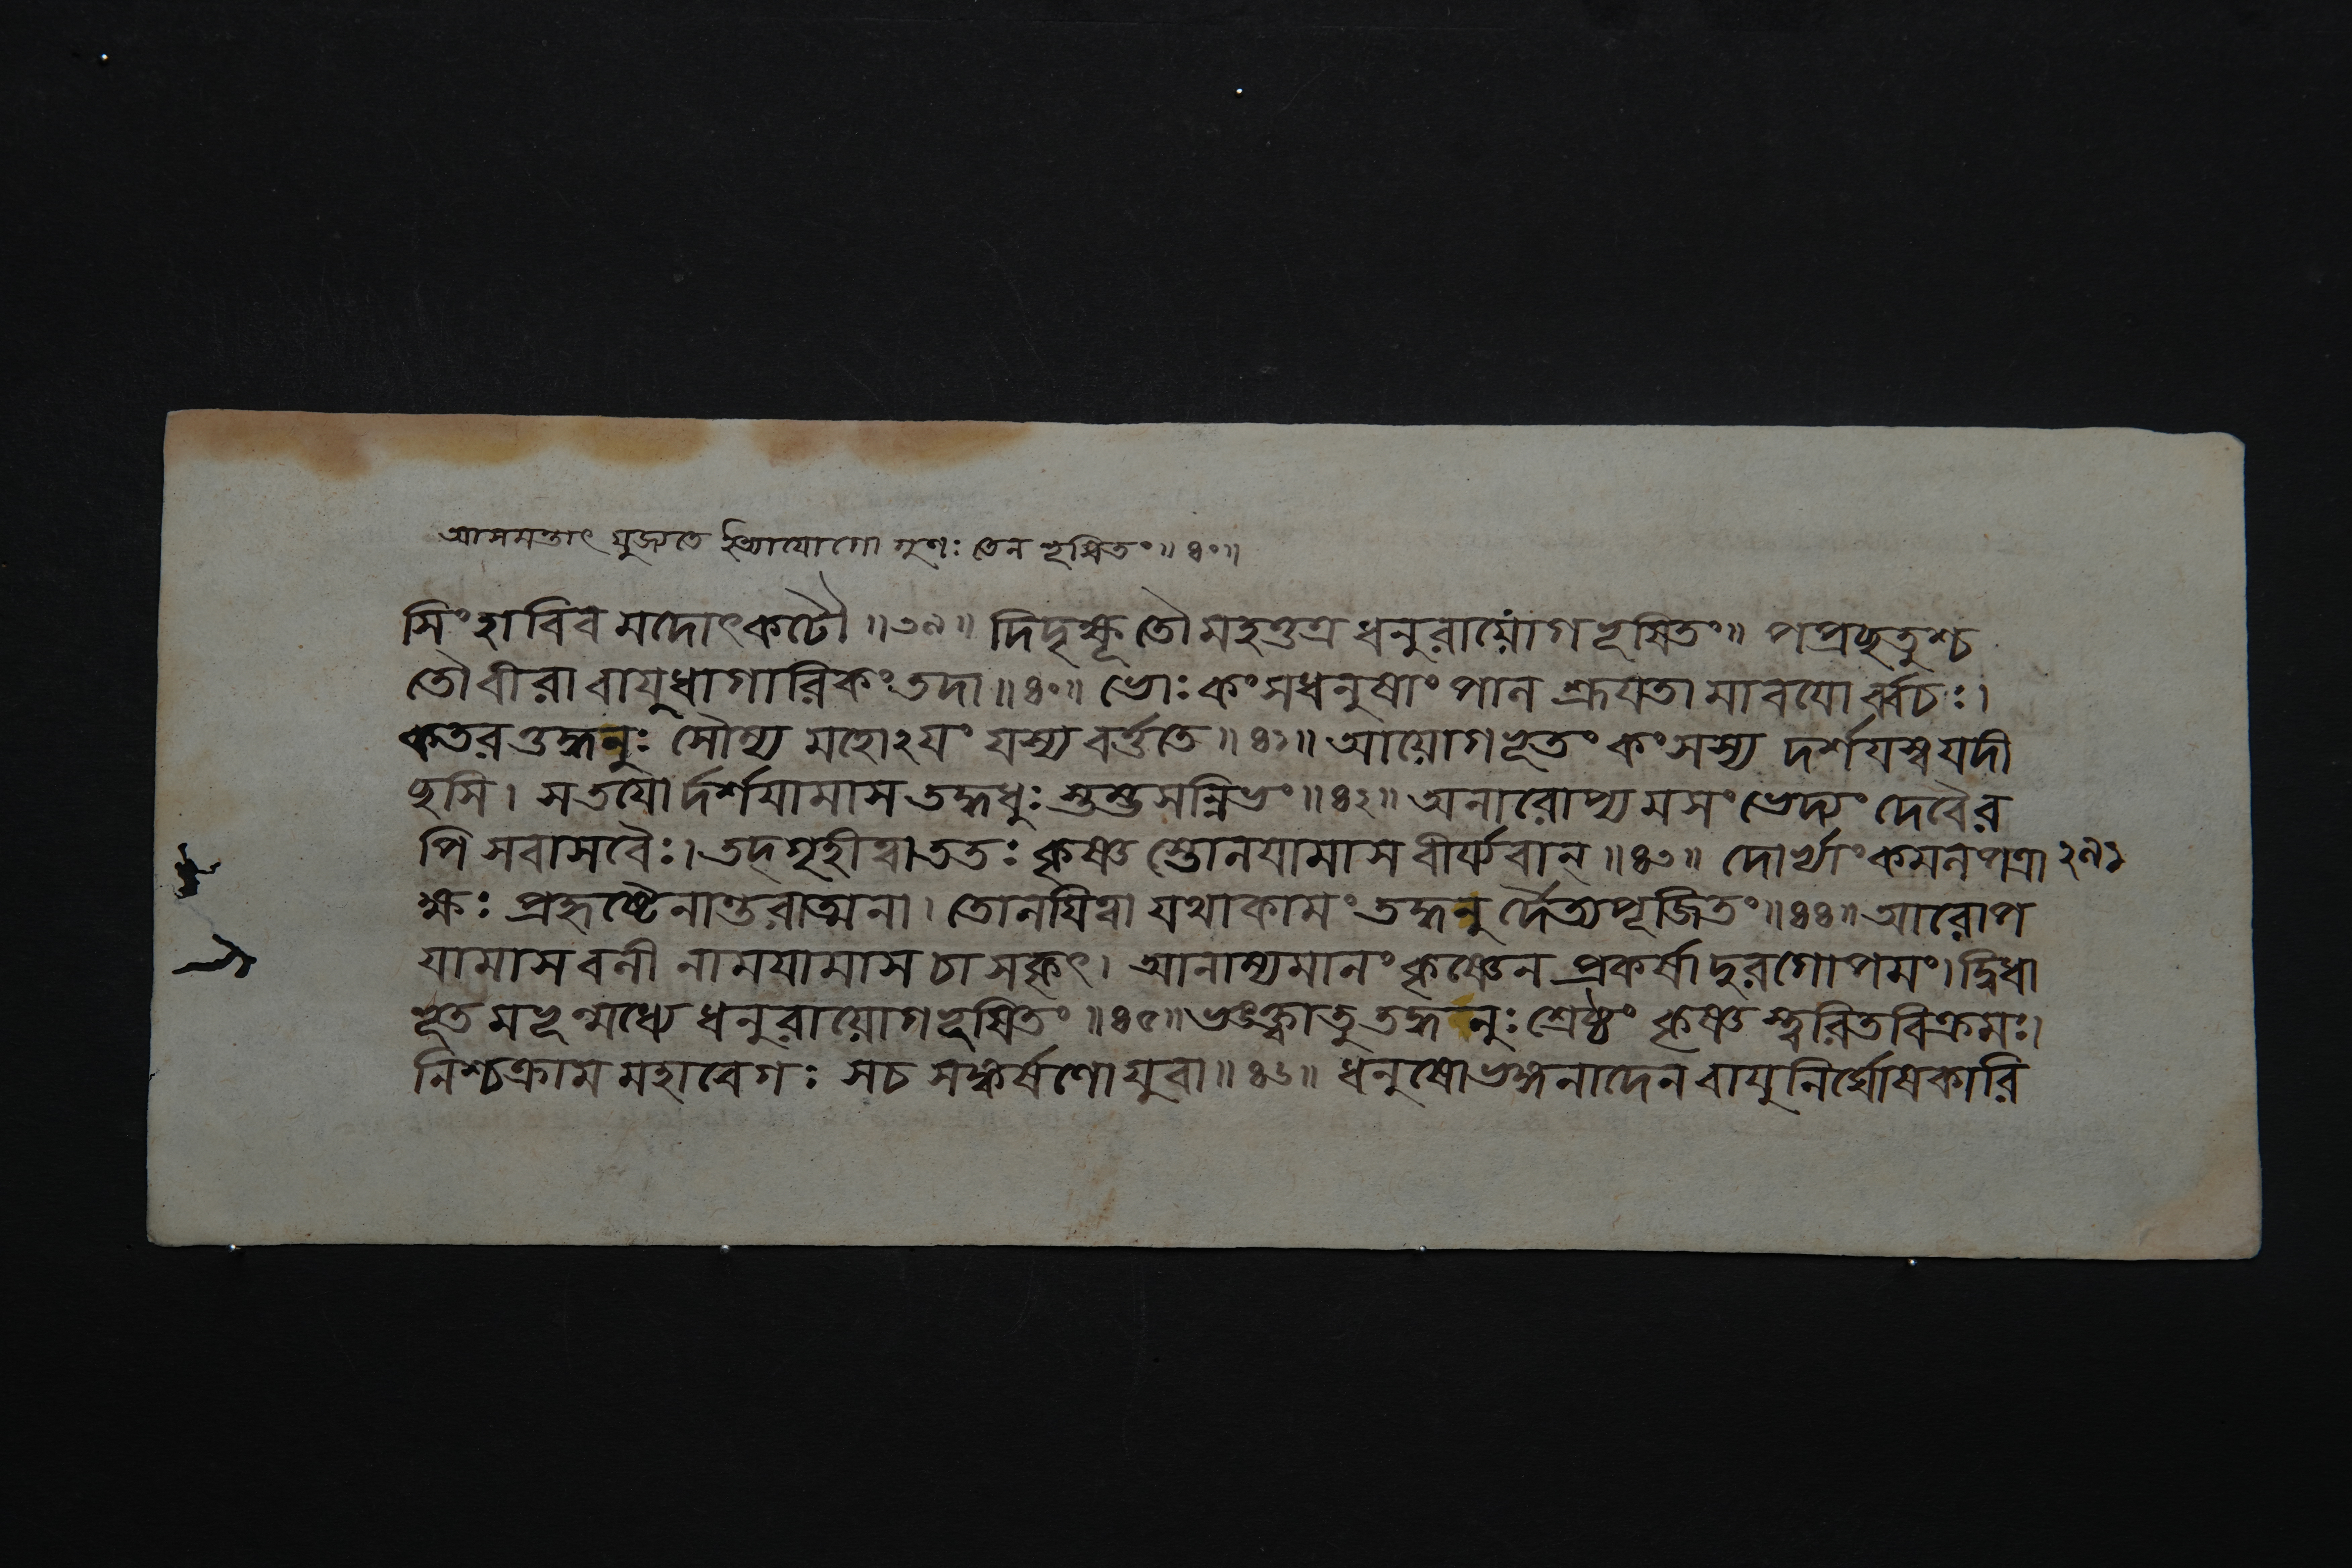 আসমন্তাৎ যুজ্যতে ইত্যাযোগো গুণঃ তেন ভূষিতং॥ ৪০॥
সিংহাবিব মদোৎকটৌ॥৩৯॥ দিদৃক্ষূ তৌ মহত্তত্র ধনুরায়োগ ভূষিতং॥ পপ্রছতুশ্চ
তৌ বীরাবাযুধাগারিকং তদা॥৪০॥ ভোঃ কংসধনুষাং পাল শ্রূযতামাবযোর্ব্বচঃ।
কতরত্তদ্ধনুঃ সৌম্য মহোঽযং যস্য বর্ত্ততে॥৪১॥ আয়োগভূতং কংসস্য দর্শযস্ব যদী
ছসি। স তযোর্দর্শযামাস তদ্ধনুঃ স্তম্ভসন্নিভং॥৪২॥ অনারোপ্যমসংভেদ্যং দেবৈর
পি সবাসবৈঃ। তদ্গৃহীত্বা ততঃ কৃষ্ণ স্তোলযামাস বীর্য্যবান্॥৪৩॥ দোর্ভ্যাং কমলপত্রা ২৭১
ক্ষঃ প্রহৃষ্টেনান্তরাত্মনা। তোলযিত্বা যথাকামং তদ্ধনুর্দৈত্যপূজিতং॥৪৪॥ আরোপ
যামাস বলী নামযামাস চাসকৃৎ। আনাম্যমানং কৃষ্ণেন প্রকর্ষাদুরগোপমং। দ্বিধা
ভূতমভূন্মধ্যে ধনুরায়োগভূষিতং॥৪৫॥ ভঙ্ক্ত্বা তু তদ্ধনুঃ শ্রেষ্ঠং কৃষ্ণ স্ত্বরিতবিক্রমঃ।
নিশ্চক্রাম মহাবেগঃ স চ সঙ্কর্ষণো যুবা॥৪৬॥ ধনুষো ভঙ্গনাদেন বাযুনির্ঘোষকারি